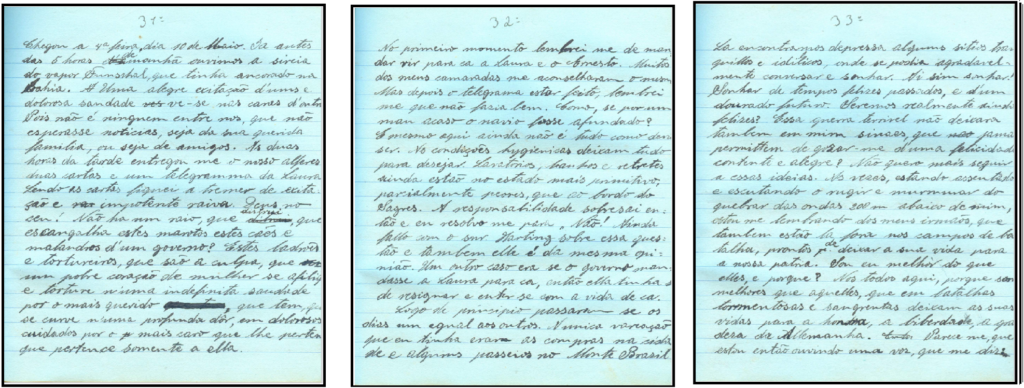 31=
Chegou a 4ª feira, dia 10 de Maio. Já antes
das 6 horas manhã ouvimos a sireia
do vapor Funschal, que tinha ancorado na
bahia. A Uma alegre exitação d'uns e
dolorosa saudade vê-se nas caras d'outros
Pois não é ninguem entre nos, que não
esperasse notícias, seja da sua querida
familia, ou seja de amigos. As duas
horas da tarde entregou me o nosso alferes
duas cartas e um telegramma da Laura.
Lendo as cartas fiquei a tremer de exita
ção e impotente raiva. Deus, no
ceu! Não ha um raio, que que
escangalha estes marotos estes cães e
malandros d'um governo? Estes ladrões
e tortureiros, que são a culpa, que
um pobre coração de mulher se aflige
e torture n'uma indefinita saudade
por o mais querido que tem, que
se curve n'uma profunda dôr, em dolorosos
cuidados por o mais caro que lhe perten
que pertence somente a ella.
32=
No primeiro momento lembrei me de man
dar vir para ca a Laura e o Ernesto. Muitos
dos meus camaradas me aconselharam o mesmo
Mas depois o telegrama esta feito, lembrei
me que não fazia bem. Como, se por um
mau acaso o navio fosse afundado?
E mesmo aqui ainda não é tudo como deve
ser. As condições hygienicas deixam tudo
para desejar. Lavatorios, banhos e retretes
ainda estão no estado mais primitivo,
parcialmente peores, que ao bordo do
Sagres. A responsabilidade sofresai en
tão e eu resolvo me para „Não! Ainda
falto com o snr Harting sobre essa ques
tão e tambem elle é da mesma opi-
nião. Um outro caso era se o governo man
dasse a Laura para ca, então ella tinha
de resignar e com a vida de ca.
Logo de principio passaram se os
dias um egual aos outros. A unica variação
que eu tinha eram as compras na cida
de e alguns passeios no Monte Brasil
33=
La encontramos depressa alguns sitios tra
quillos e idilicos, onde se podia agradavel-
mente conversar e sonhar. Ai sim sonhar!
Sonhar de tempos felizes passados, e d'um
dourado futuro. Seremos realmente ainda
felizes? Essa guerra terrivel não deixara
tambem em mim sinaes, que nao jamais
permittem de gozar-me d'uma felicidade
contente e alegre? Não quero mais seguir
a essas ideias. As vezes, estando assentado
e escutando o rugir e murmurar do
quebrar das ondas 200m abaixo de mim,
estou me lembrando dos meus irmãos, que
tambem estão la fora nos campos de ba
talha, prontos de deixar a sua vida para
a nossa patria. Sou eu melhor do que
elles, e porque? Nos todos aqui, porque somos
melhores que aquelles, que em batalhas
tormentosas e sangrentas deixam as suas
vidas para a honra, a liberdade, a gran
deza da Allemanha. Parece me, que
estou então ouvindo uma voz, que me dise